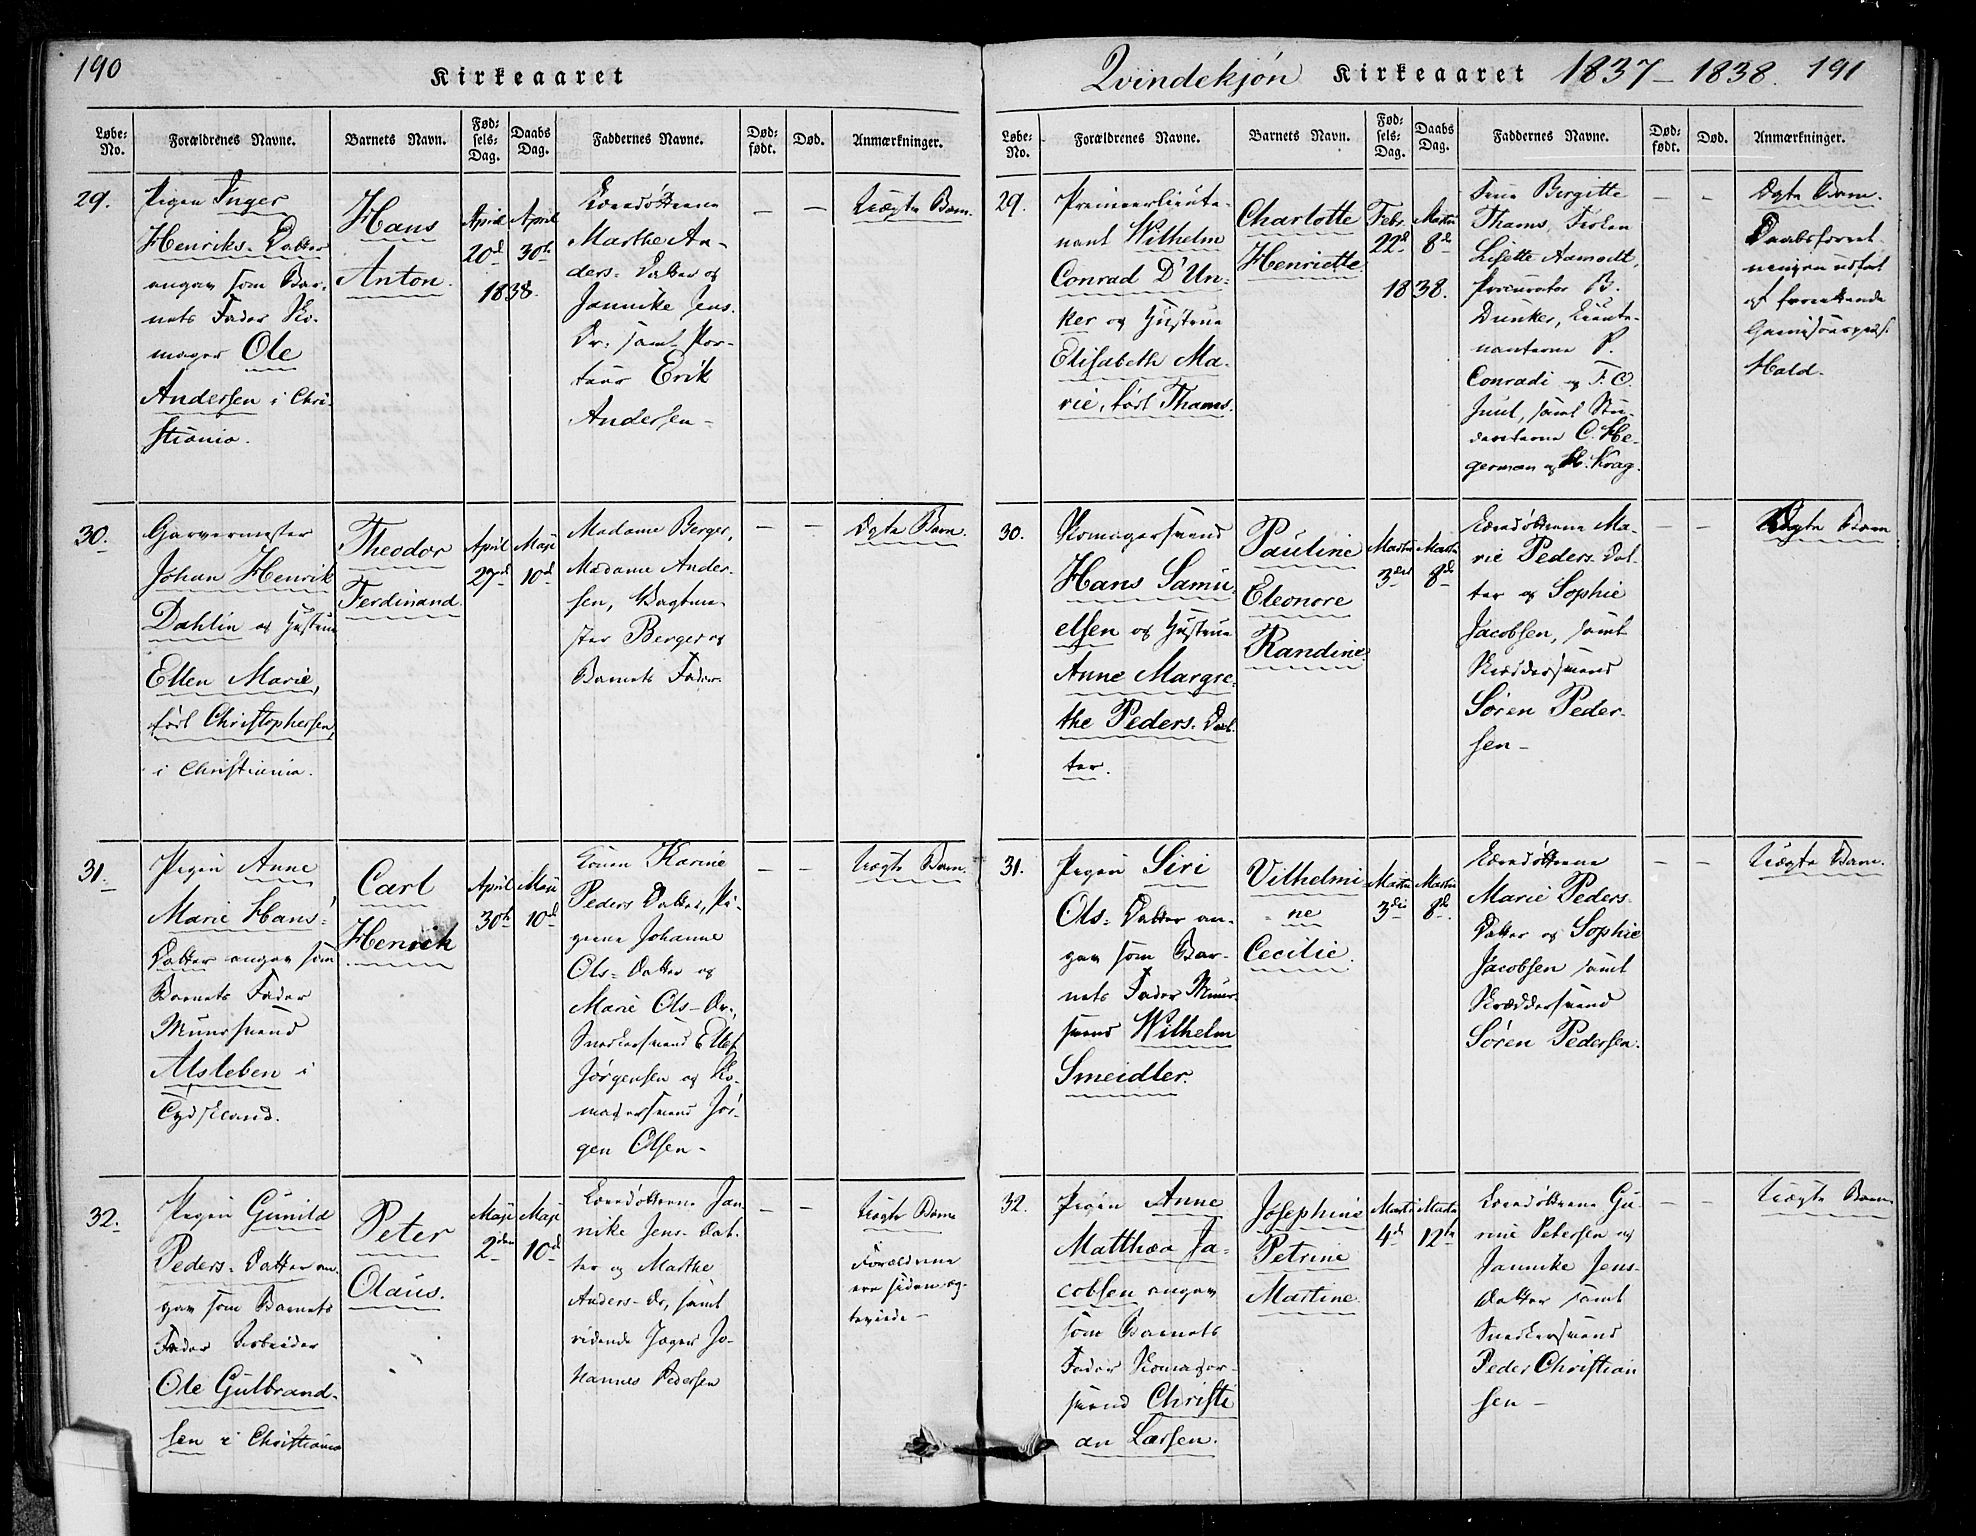 190
Kirkeaaret
Løbe-No.
Forældrenes Navne.
Barnets Navn.
Fødsels-Dag.
Daabs Dag.
Faddernes Navne.
Død-født.
Død.
Anmærkninger.
29.
Pigen Inger
Henriks-Datter
angav som Bar-
nets Fader Ko-
mager Ole
Andersen i Chri-
stiania.
Hans
Anton.
April
20d
April
30te
1838.
Marthe An-
ders-Datter og
Jannike Jens-
Dr: samt Por-
teur Erik
Andersen-
—
—
Uægte Barn.
30.
Garvermester
Johan Henrik
Dahlin og Hustrue
Ellen Marie,
født Christophersen,
i Christiania.
Theodor
Ferdinand.
April
27d
Maji
10d
Madame Berger,
Madame Ander-
sen, Bagtme-
ster Berger og
Barnets Fader-
—
—
Ægte Barn.
31.
Pigen Anne
Marie Hans-
Datter angav som
Barnets Fader
Muursvend
Alsleben i
Tydskland.
Carl
Henrik
April
30te
Maji
10d
Konen Karine
Peders Datter, Pi-
gerne Johanne
Ols-Datter og
Marie Ols-Dr.,
Snedkersvend Ellef
Jørgensen og Ko-
magersvend Jør-
gen Olsen-
—
—
Uægte Barn.
32.
Pigen Gunild
Peders-Datter an-
gav som Barnets
Fader Arbeider
Ole Gulbrand-
sen i Christiania
Peter
Olaus.
Maji
2den
Maji
10d
Jan
nike Jens-Dat-
ter og Marthe
Anders-Dr, samt
ridende Jæger Jo-
hannes Pedersen
—
—
Uægte Barn
Forældrene
ere siden æg-
teviede-
Qvindekjøn Kirkeaaret 1837-1838. 191
Løbe-No.
Forældrenes Navne.
Barnets Navn.
Fødsels-Dag.
Daabs Dag.
Faddernes Navne.
Død-født.
Død.
Anmærkninger.
29.
Premierlieute-
nant Wilhelm
Conrad D'Un-
ker og Hustrue
Elisabeth Ma-
rie, født Thams.
Charlotte
Henriette.
Febr.
22d
Martii
8d
1838.
Frue Bergitte
Thams, Frøken
Lisette Aamodt,
Procurator B.
Dunker, Lieute-
nanterne P.
Conradi og F. C.
Juul, samt Stu-
denterne C. He-
german og H. Krag.
—
—
Ægte Barn.
Daabsforret-
ningen udført
af
Hald.
30.
Komagersvend
Hans Samu-
elsen og Hustrue
Anne Margre-
the Peders-Dat-
ter.
Pauline
Eleonore
Randine.
Martii
3die
Martii
8d
Ma-
rie Peders-Dat-
ter og Sophie
Jacobsen, samt
Skræddersvend
Søren Peder-
sen-
—
—
Ægte Barn
31.
Pigen Siri
Ols-Datter an-
gav som Bar-
nets Fader Muur-
svend Wilhelm
Smeidler.
Vilhelmi
ne
Cecilie.
Martii
3die
Martii
8d
Marie Peders-
Datter og Sophie
Jacobsen samt
Skræddersvend
Søren Pedersen.
—
—
Uægte Barn.
32.
Pigen Anne
Matthæa Ja-
cobsen angav
som Barnets
Fader Komager-
svend Christi
an Larsen.
Josephine
Petrine
Martine
Martii
4d
Martii
12te
Gu-
rine Petersen og
Jannike Jens-
Datter samt
Snedkersvend
Peder Christian
sen-
—
—
Uægte Barn